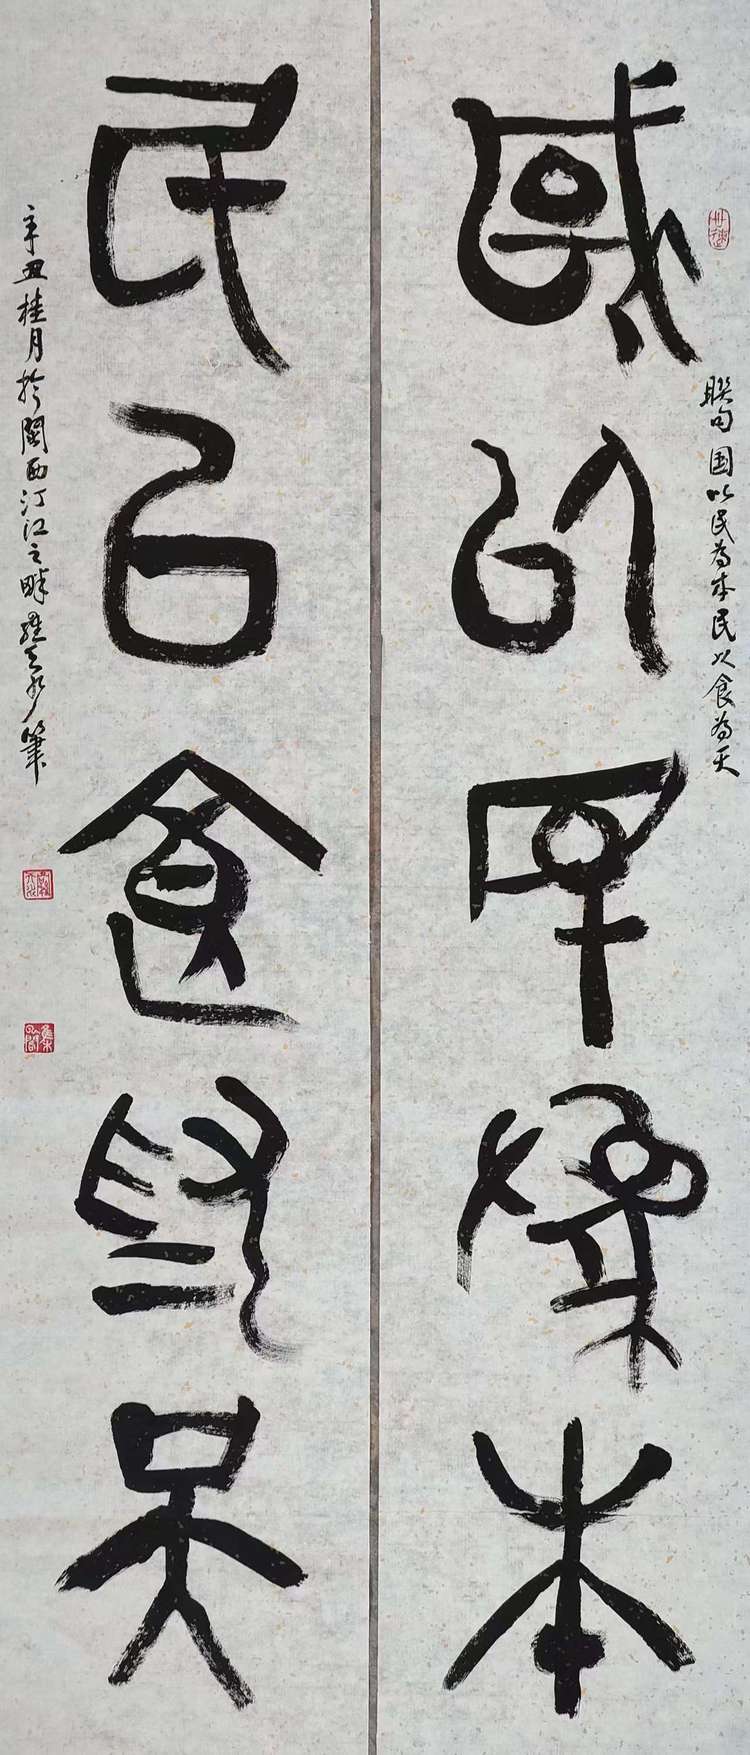 國以民爲本
联句国以民为本民以食为天
民以食爲天
辛丑桂月於閩西汀江之畔 筆